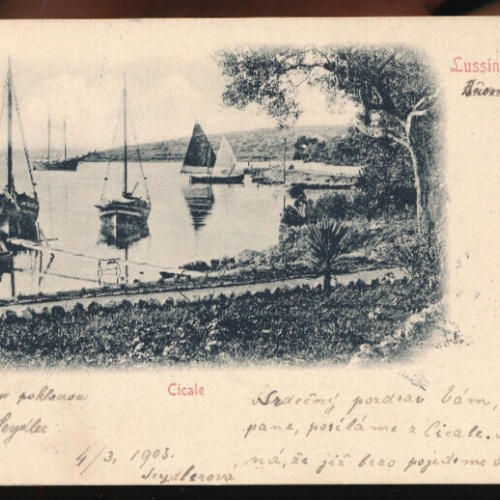 Lussin
Cicale
poklonou
Seydler
4/3. 1903.
Seydlerová
Srdečný pozdrav Vám,
pane, posíláme z Cicale.
ná, že již brzo pojedeme